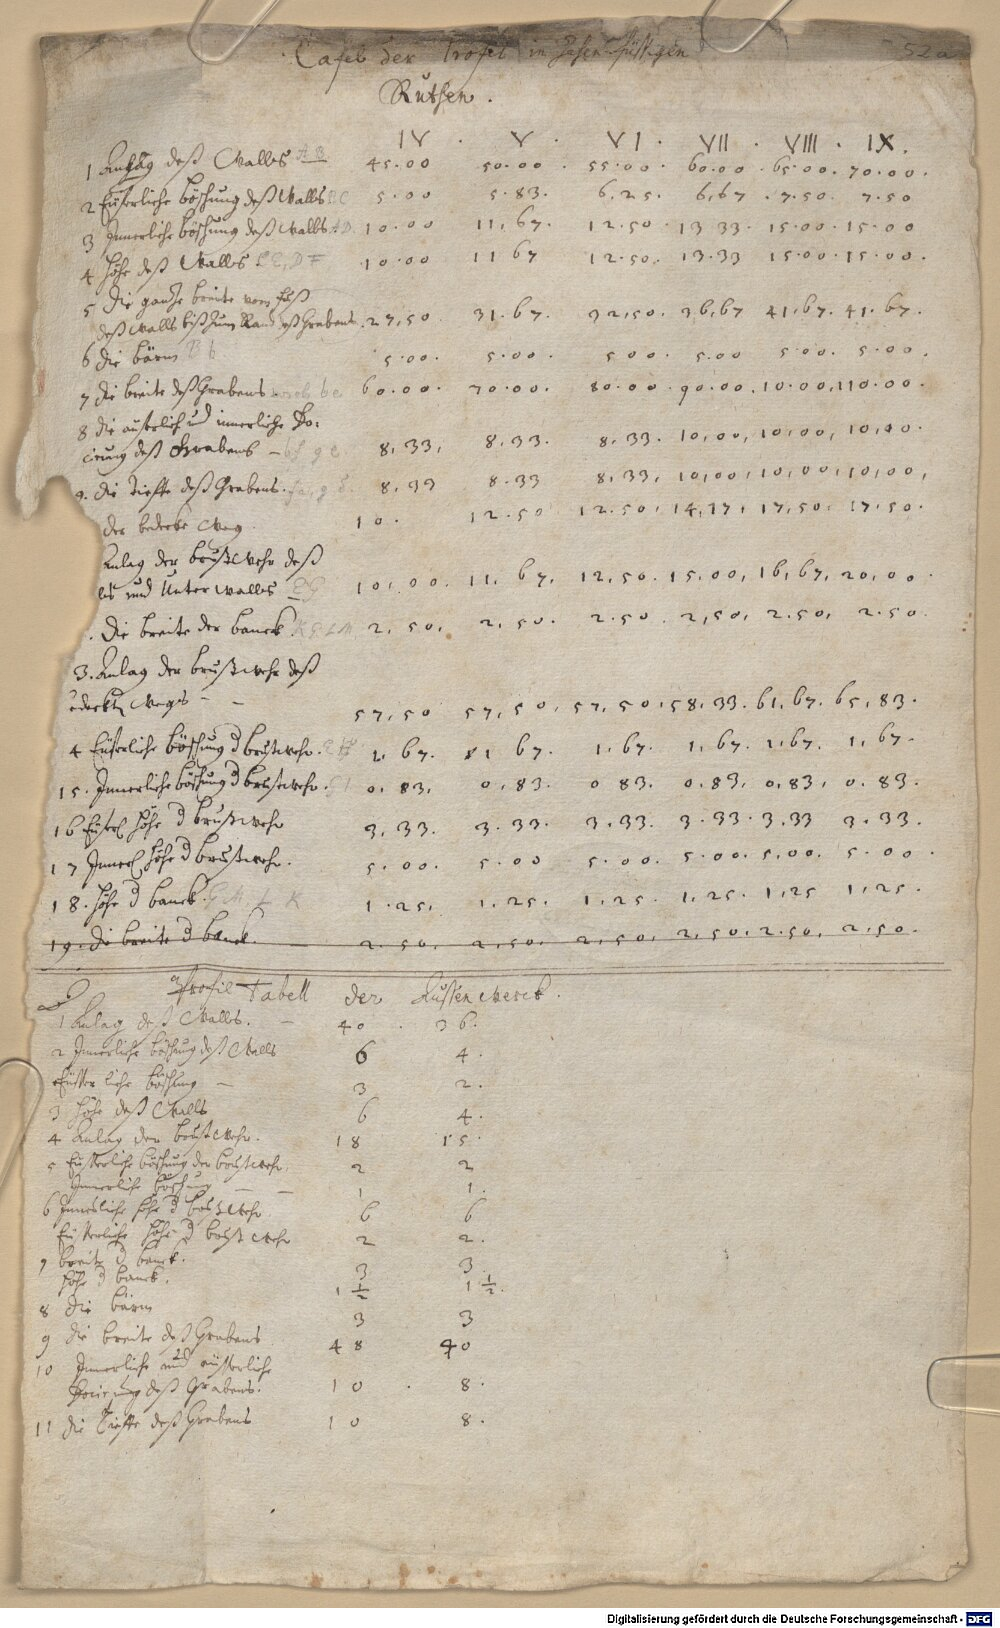 Tafel der Profil in zehen füssigen 52a
Ruthen.
IV. V. VI. VII. VIII. IX.
1 Anlag deß Walles A B 45.00 50.00 55.00. 60.00. 65.00. 70.00.
2 Eüserliche böschung deß Walls B C 5.00 5.83. 6.25. 6,67. 7.50. 7.50
3 Innerliche böschung deß Walls A D. 10.00 11,67. 12.50. 13 33. 15.00. 15.00
4 Höhe deß Walles E C, D F 10.00 11 67 12.50. 13.33 15.00. 15.00.
5 die gantze breite vom fuß
deß Walls biß zum Rand deß Grabens. 27,50. 31.67. 32,50. 36,67 41,67. 41.67.
6 die bärm B b 5.00. 5.00. 5 00. 5.00 5.00. 5.00.
7 die breite deß Grabens 60.00. 70.00. 80.00. 90.00. 10.00. 110.00.
8 die äüserlich und innerliche Do:
cirung deß Grabens 8,33, 8,33. 8,33. 10,00, 10,00, 10,00.
9. die tieffe deß Grabens. 8,33 8.33 8,33, 10,00, 10,00, 10,00,
der bedeckte Weg. 10. 12.50 12.50. 14,17, 17,50. 17.50.
Anlag der brustwehr deß
les und Unterwalles E G 10,00. 11,67. 12,50. 15.00, 16,67, 20,00.
. die breite der banck. K G L M 2,50, 2,50. 2.50. 2,50, 2.50, 2.50.
3. Anlag der brustwehr deß
edeckten Weges - - 57,50 57,50. 57,50. 58,33. 61,67. 65,83.
4 Eüserliche böschung d brustwehr. E H 1,67. 1 67. 1.67. 1,67. 1.67. 1,67.
15. Innerliche böschung d brustwehr. G I 0,83, 0,83. 0 83. 0.83, 0,83, 0.83.
16 Eüserl höhe d brustwehr 3,33. 3.33. 3.33. 3.33. 3.33 3.33.
17 Innerl höhe d brustwehr. 5.00. 5.00 5.00. 5.00. 5.00. 5.00.
18. höhe d banck. G M, L K 1.25, 1.25. 1.25. 1.25. 1.25 1.25.
19. die breite d banck. 2.50, 2,50. 2,50, 2,50. 2.50, 2,50.
Profil Tabell der Aussenwerck.
1 Anlag deß Walles. - 40. 36.
2 Innerliche böschung deß Walls 6 4.
Eüsserliche böschung - 3 2.
3 höhe deß Walls 6 4.
4 Anlag der brustwehr. 18 15.
5 Eüserliche böschung der brustwehr. 2 2
Innerliche böschung - - 1 1.
6 Innerliche höhe d brustwehr 6 6
Eüserliche höhe d brustwehr 2 2.
7 breite d banck. 3 3.
höhe d banck. 1 1/2 1 1/2.
8 die bärm 3 3
9 die breite deß Grabens 48 40
10 Innerliche und äüsserliche
Docirung deß Grabens. 10. 8.
11 die Tieffe deß Grabens 10 8.
Digitalisierung gefördert durch die Deutsche Forschungsgemeinschaft - DFG